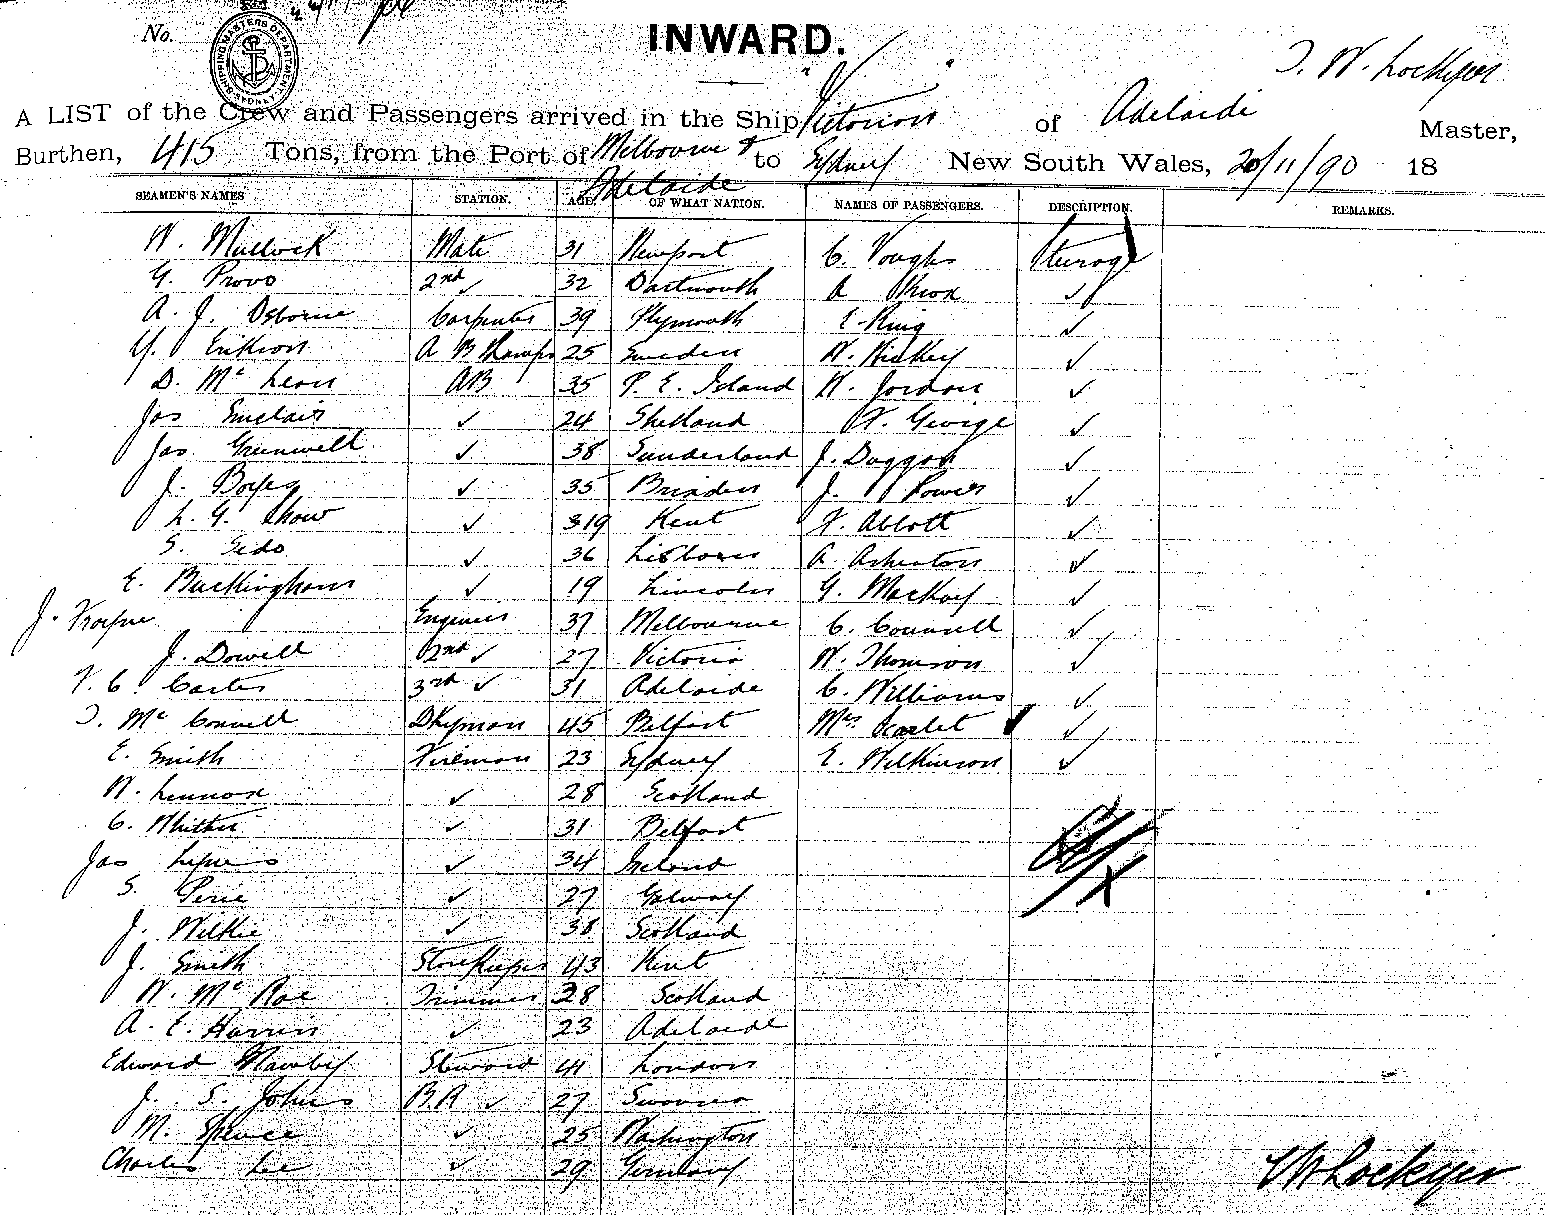 No.
SHIPPING MASTERS DEPARTMENT SYDNEY
INWARD.
T. W. Lockyer
A LIST of the Crew and Passengers arrived in the Ship "Victorian" of Adelaide Master,
Burthen, 415 Tons, from the Port of Melbourne & Adelaide to Sydney New South Wales, 20/11/90 18
SEAMEN'S NAMES STATION. AGE. OF WHAT NATION. NAMES OF PASSENGERS. DESCRIPTION. REMARKS.
W. Mullock Mate 31 Newport C. Voughs Steerage
G. Provo 2nd ✓ 32 Dartmouth A Knox ✓
A. J. Osborne Carpenter 39 Plymouth E. King ✓
Y. Erikson A B Lamps 25 Sweden W. Hickey ✓
D. Mc Lean AB 35 P. E. Island W. Jordan ✓
Jas Sinclair ✓ 24 Shetland F. George ✓
Jas Greenwell ✓ 38 Sunderland J. Duggan ✓
J. Boyes ✓ 35 J. Power ✓
L. G. Show ✓ 319 Kent F. Abbott ✓
S. Sedo ✓ 36 Lisbon A. Asherton ✓
E. Buckingham ✓ 19 Lincoln G. Mackay ✓
J. Frayne Engineer 37 Melbourne C. Connell ✓
J. Dowell 2nd ✓ 27 Victoria W. Thomson ✓
F. C. Carter 3rd ✓ 31 Adelaide C. Williams ✓
T. Mc Connell Dkyman 45 Belfast Mrs Scarlet ✓
E. Smith Fireman 23 Sydney E. Wilkinson ✓
W. Lennox ✓ 28 Scotland
C. Whitter ✓ 31 Belfast
Jas ✓ 34 Ireland
S. Pirie ✓ 27 Galway
J. Wilkie ✓ 38 Scotland
J. Smith Storekeeper 43 Kent
W. Mc Rae Trimmer 28 Scotland
A. E. Harris ✓ 23 Adelaide
Edward Mawby Steward 41 London
J. S. Johns B.R ✓ 27 Swansea
M. Spence ✓ 25 Washington
Charles Lee ✓ 29 Germany
T W Lockyer